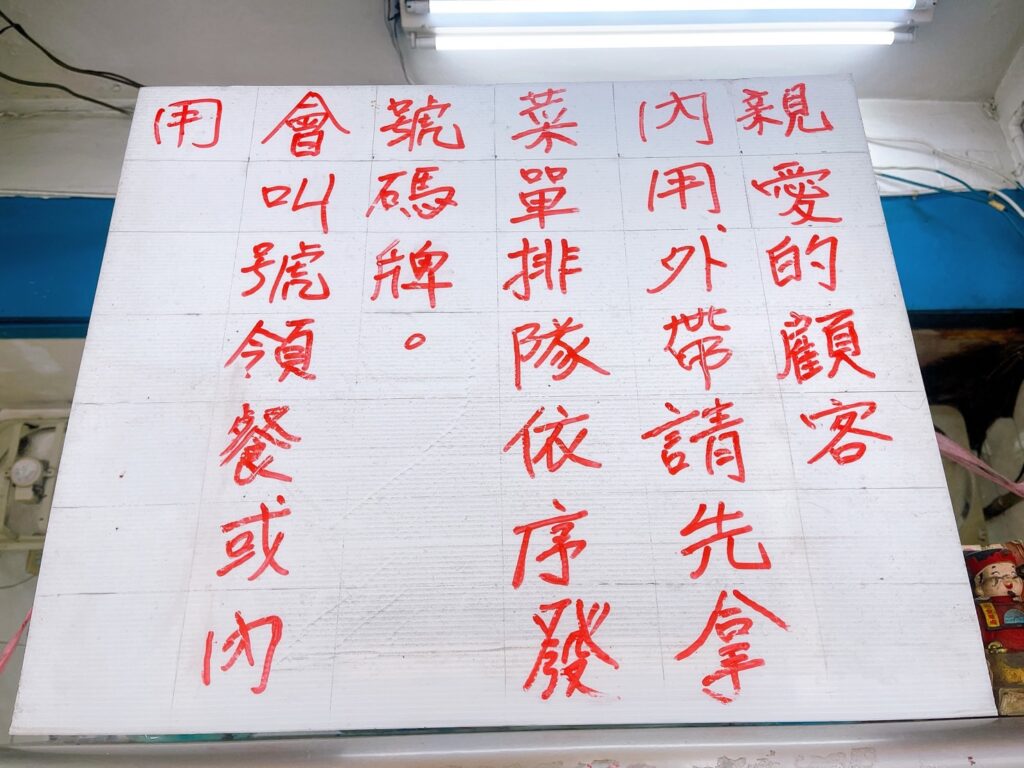 親愛的顧客
內用、外帶請先拿
菜單排隊依序發
號碼牌。
會叫號領餐或內
用